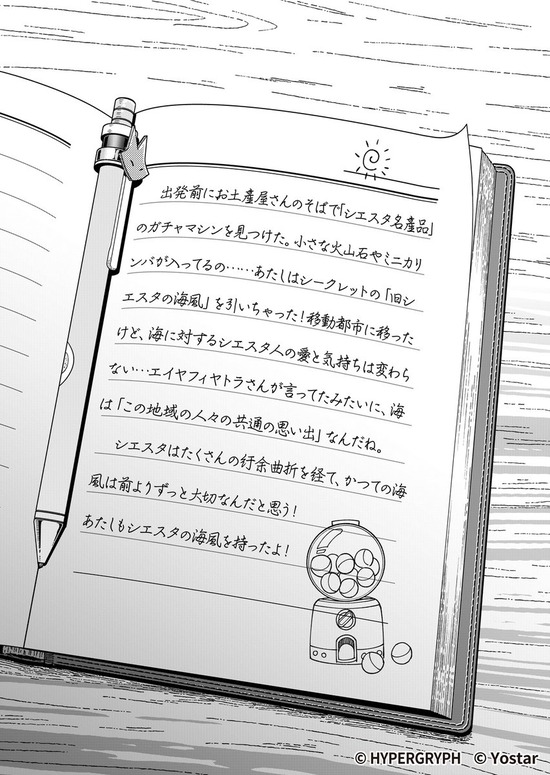 出発前にお土産屋さんのそばで「シエスタ名産品」
のガチャマシンを見つけた。小さな火山石やミニカリ
ンバが入ってるの……あたしはシークレットの「旧シ
エスタの海風」を引いちゃった！移動都市に移った
けど、海に対するシエスタ人の愛と気持ちは変わら
ない…エイヤフィヤトラさんが言ってたみたいに、海
は「この地域の人々の共通の思い出」なんだね。
シエスタはたくさんの紆余曲折を経て、かつての海
風は前よりずっと大切なんだと思う！
あたしもシエスタの海風を持ったよ！
© HYPERGRYPH © Yostar